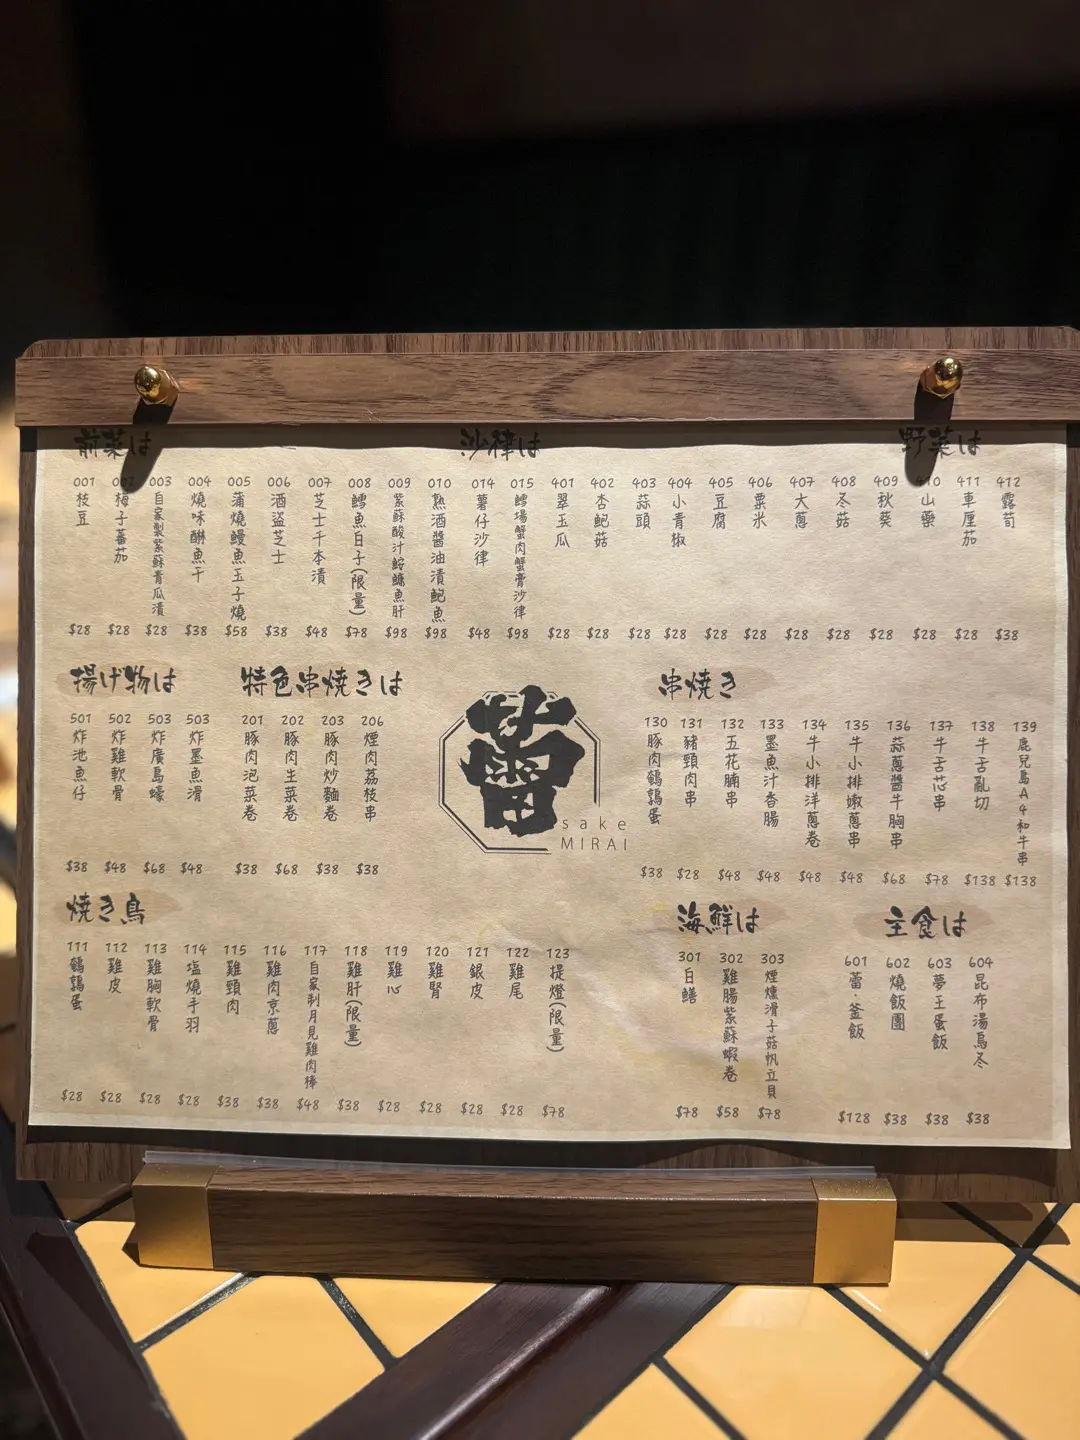 前菜は
001 枝豆 $28
002 梅子蕃茄 $28
003 自家製紫蘇青瓜漬 $28
004 燒味醂魚干 $38
005 蒲燒鰻魚玉子燒 $58
006 酒盜芝士 $38
007 芝士千本漬 $48
008 鱈魚白子(限量) $78
009 紫蘇酸汁鮟鱇魚肝 $98
010 熟酒醬油漬鮑魚 $98
沙律は
014 薯仔沙律 $48
015 鱈場蟹肉蟹膏沙律 $98
野菜は
401 翠玉瓜 $28
402 杏鮑菇 $28
403 蒜頭 $28
404 小青椒 $28
405 豆腐 $28
406 粟米 $28
407 大蔥 $28
408 冬菇 $28
409 秋葵 $28
410 山藥 $28
411 車厘茄 $28
412 露荀 $38
揚げ物は
501 炸池魚仔 $38
502 炸雞軟骨 $48
503 炸廣島蠔 $68
503 炸墨魚滑 $48
特色串焼きは
201 豚肉泡菜卷 $38
202 豚肉生菜卷 $68
203 豚肉炒麵卷 $38
206 煙肉荔枝串 $38
sake
MIRAI
串焼き
130 豚肉鵪鶉蛋 $38
131 豬頸肉串 $28
132 五花腩串 $48
133 墨魚汁香腸 $48
134 牛小排洋蔥卷 $48
135 牛小排嫩蔥串 $48
136 蒜蔥醬牛胸串 $68
137 牛舌芯串 $78
138 牛舌亂切 $138
139 鹿兒島A4和牛串 $138
焼き鳥
111 鵪鶉蛋 $28
112 雞皮 $28
113 雞胸軟骨 $28
114 塩燒手羽 $28
115 雞頸肉 $38
116 雞肉京蔥 $38
117 自家制月見雞肉棒 $48
118 雞肝(限量) $38
119 雞心 $28
120 雞腎 $28
121 銀皮 $28
122 雞尾 $28
123 提燈(限量) $78
海鮮は
301 白鱔 $78
302 雞腸紫蘇蝦卷 $58
303 煙燻滑子菇帆立貝 $78
主食は
601 蕾·釜飯 $128
602 燒飯團 $38
603 夢王蛋飯 $38
604 昆布湯烏冬 $38